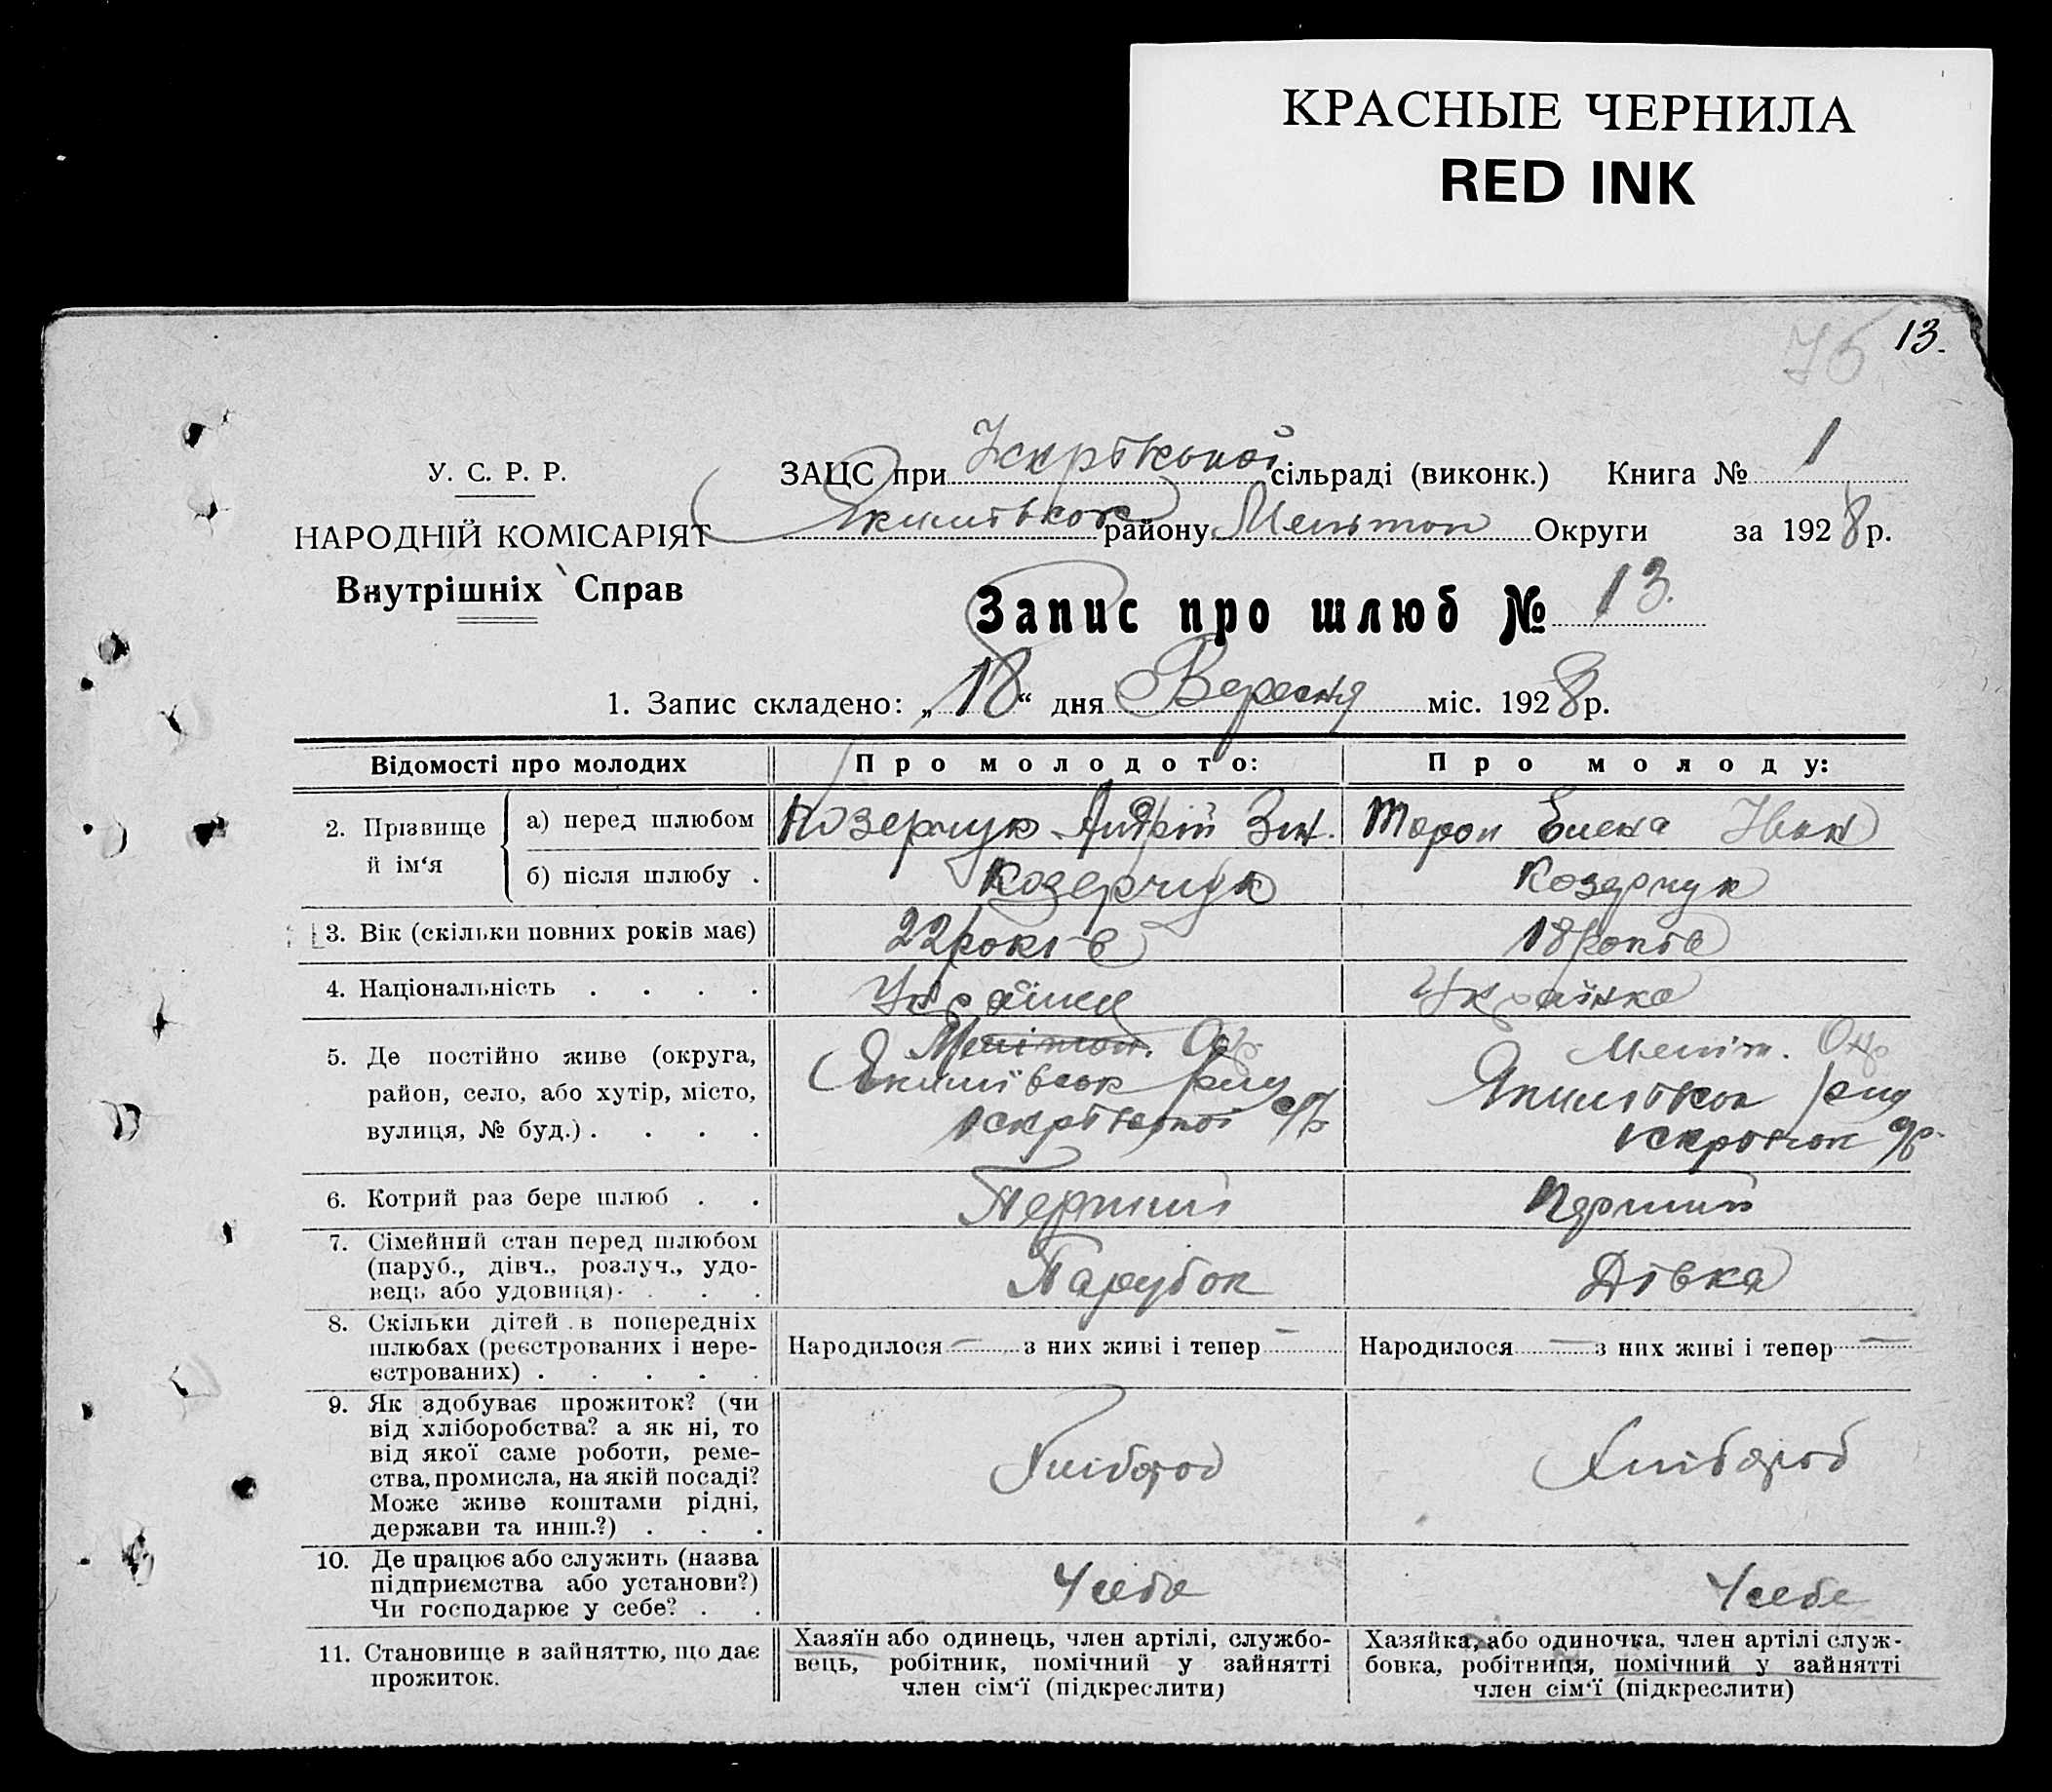 КРАСНЫЕ ЧЕРНИЛА
RED INK
13.
У. С. Р. Р.
НАРОДНІЙ КОМІСАРІЯТ
Внутрішніх Справ
ЗАЦС при сільраді (виконк.) Книга № 1
району Округи за 1928 р.
Запис про шлюб № 13.
1. Запис складено: „18“ дня Вересня міс. 1928 р.
Відомості про молодих
Про молодого:
Про молоду:
2. Прізвище й ім‘я
а) перед шлюбом
Козерчук Андрій Зин.
Елена Иван
б) після шлюбу .
Козерчук
Козерчук
3. Вік (скільки повних років має)
22 років
18 років
4. Національність . . . .
Українка
5. Де постійно живе (округа,
район, село, або хутір, місто,
вулиця, № буд.) . . . .
Меліт. Окр
6. Котрий раз бере шлюб . .
Перший
Перший
7. Сімейний стан перед шлюбом
(паруб., дівч., розлуч., удо-
вець або удовиця) . . .
Парубок
Дівка
8. Скільки дітей в попередніх
шлюбах (реєстрованих і нере-
єстрованих) . . . . .
Народилося — з них живі і тепер —
Народилося — з них живі і тепер —
9. Як здобуває прожиток? (чи
від хліборобства? а як ні, то
від якої саме роботи, реме-
ства, промисла, на якій посаді?
Може живе коштами рідні,
держави та инш.?) . . .
Хлібороб
Хлібороб
10. Де працює або служить (назва
підприємства або установи?)
Чи господарює у себе? . .
У себе
У себе
11. Становище в зайняттю, що дає
прожиток.
Хазяїн або одинець, член артілі, службо-
вець, робітник, помічний у зайнятті
член сім‘ї (підкреслити)
Хазяйка, або одиночка, член артілі служ-
бовка, робітниця, помічний у зайнятті
член сім‘ї (підкреслити)